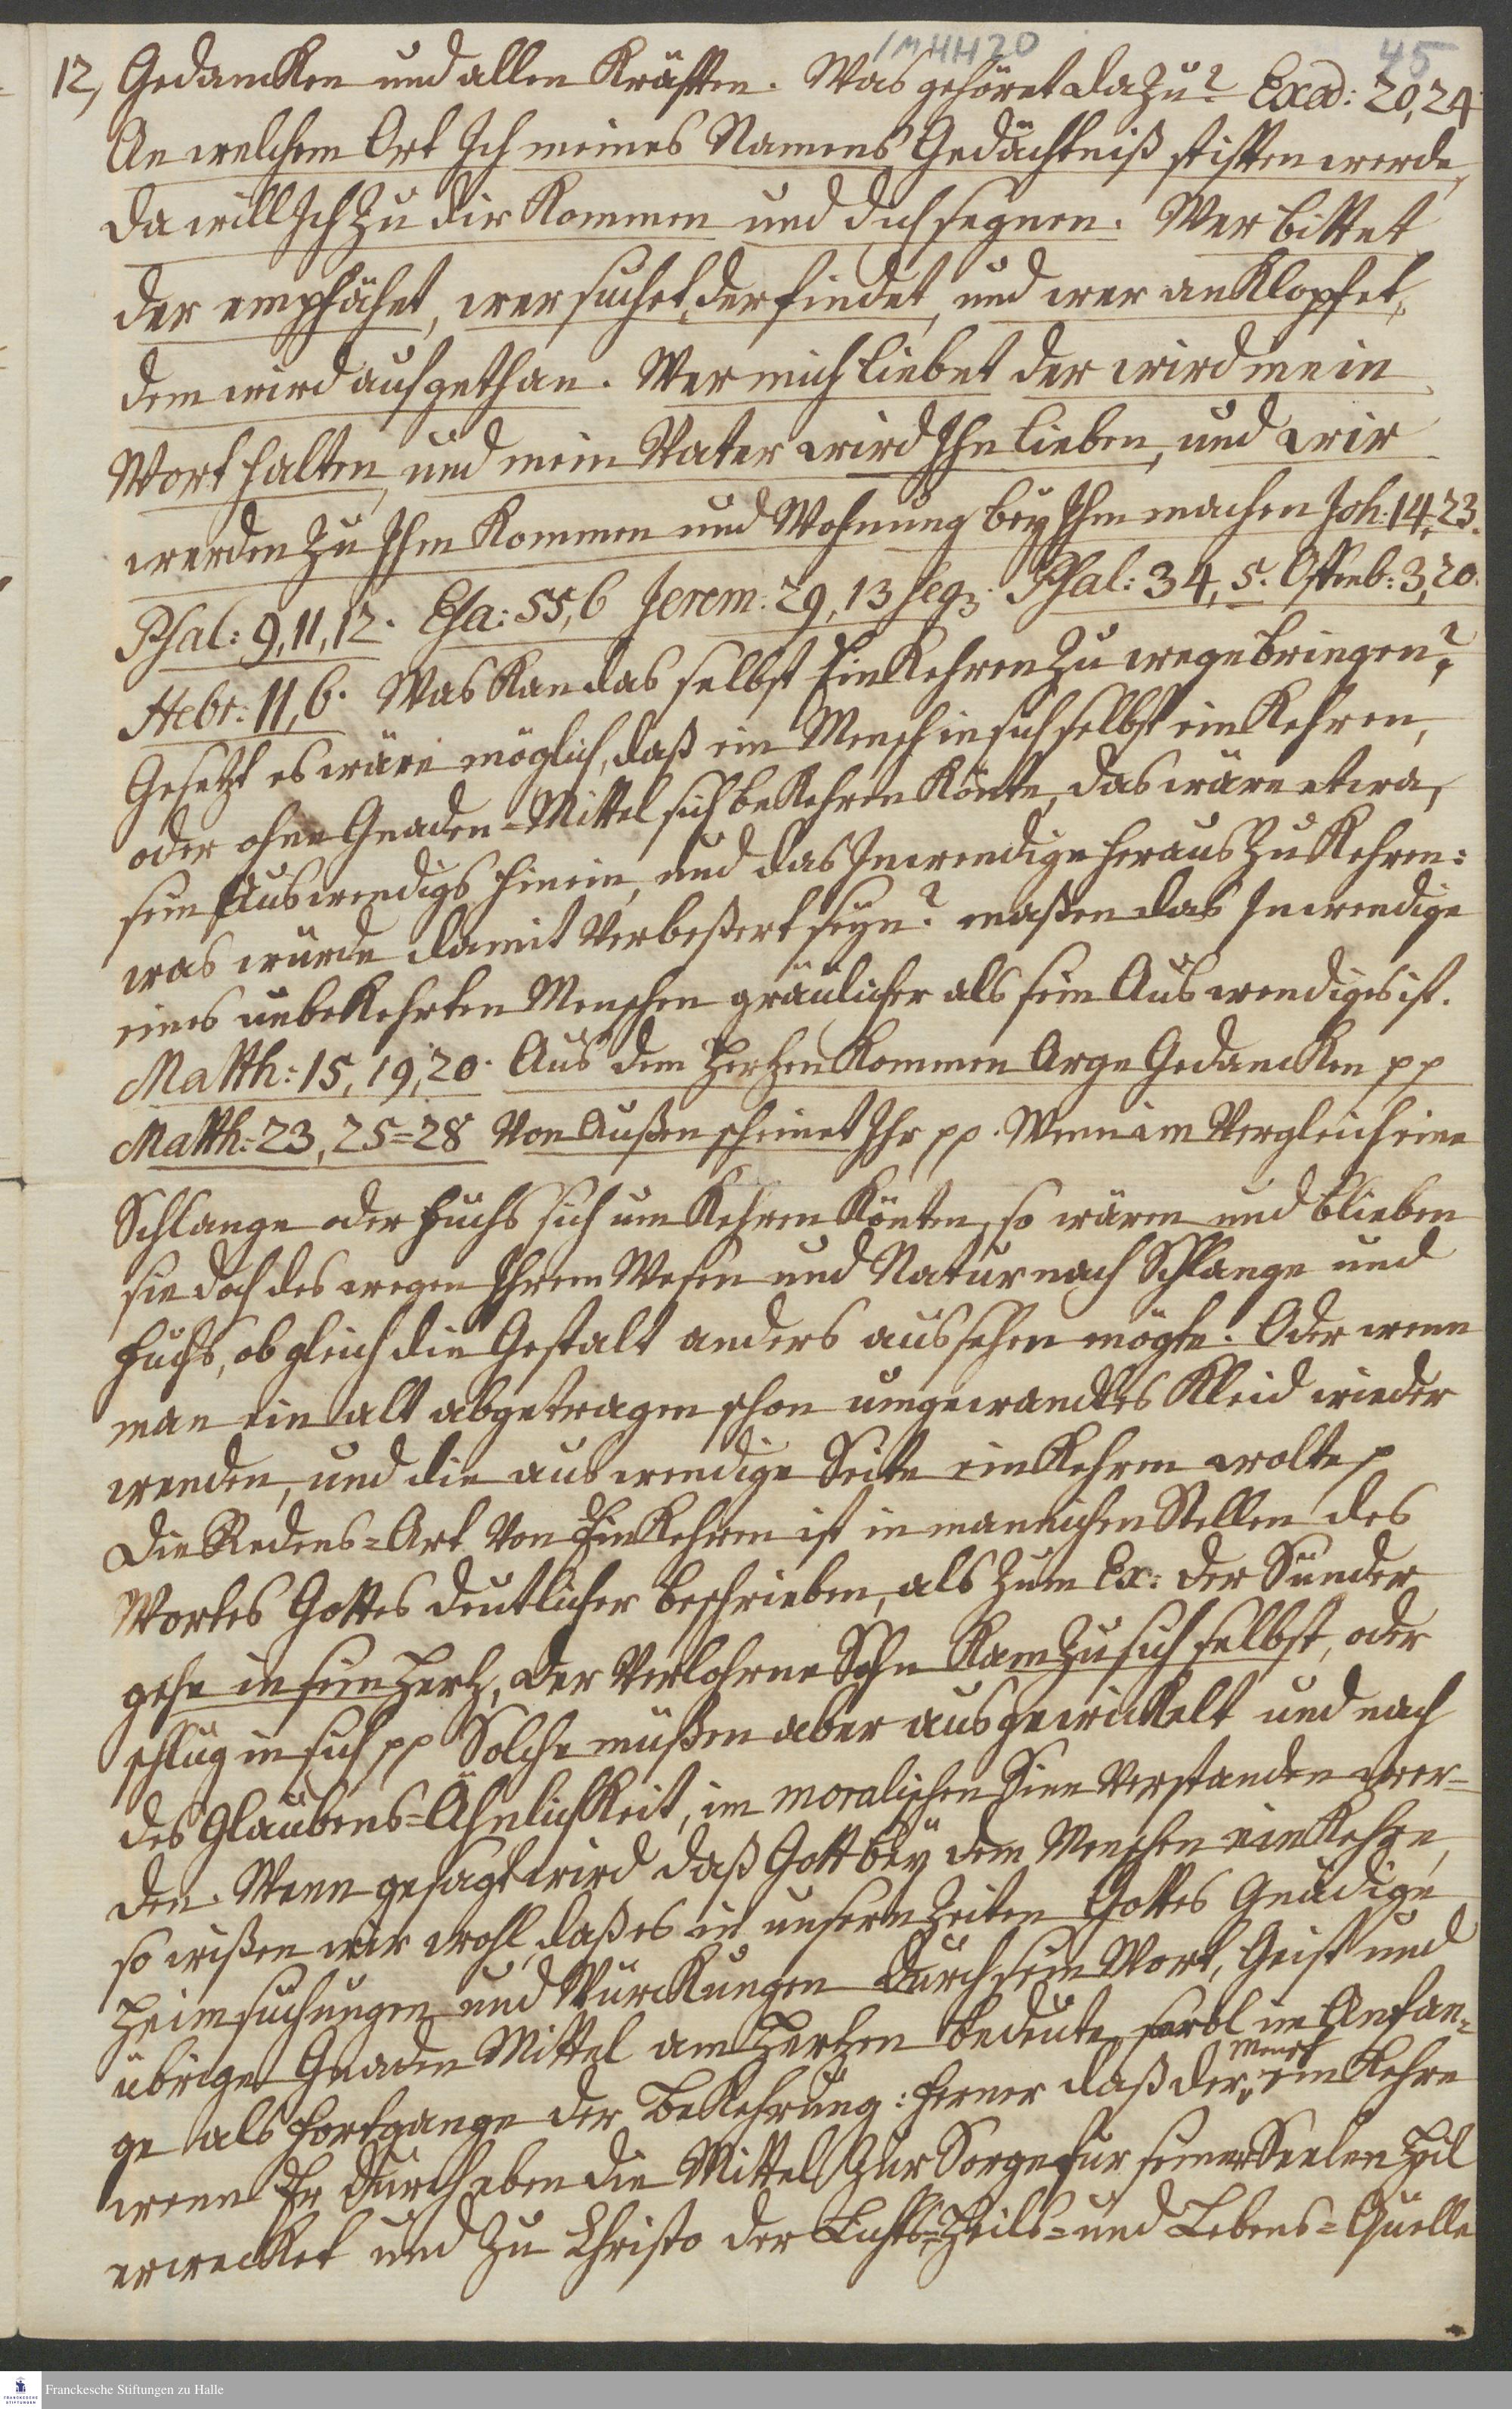 1M4H20
45
12, Gedancken und allen Kräfften. Was gehöret dazu? Exod: 20, 24
An welchem Ort Ich meines Namens Gedächtniß stifften werde,
da will Ich zu dir kommen und dich segnen. Wer bittet
der empfähet, wer suchet, der findet, und wer anklopfet,
dem wird aufgethan. Wer mich liebet der wird mein
Wort halten, und mein Vater wird Ihn lieben, und wir
werden zu Ihm kommen und Wohnung bey Ihm machen Joh: 14, 23.
Psal: 9, 11, 12. Esa: 55, 6 Jerem: 29, 13 seqq. Psal: 34, 5. Offenb: 3, 20.
Hebr: 11, 6. Was kan das selbst Einkehren zu wege bringen?
Gesetzt es wäre möglich, daß ein Mensch in sich selbst einkehren,
oder ohne Gnaden-Mittel sich bekehren könte, das wäre etwa,
sein Auswendigs hinein, und das Inwendige heraus zu kehren:
was würde damit verbeßert seyn? maßen das Inwendige
eines unbekehrten Menschen gräulicher als sein Auswendiges ist.
Matth: 15, 19, 20. Aus dem Hertzen kommen Arge Gedancken pp
Matth: 23, 25=28 Von Außen scheinet Ihr pp. Wenn im Vergleich eine
Schlange oder Fuchs sich umkehren könten, so wären und blieben
sie doch des wegen Ihrem Wesen und Natur nach Schlange und
Fuchs, ob gleich die Gestalt anders aussehen mögte. Oder wenn
man ein alt abgetragen schon umgewandtes Kleid wieder
wenden, und die auswendige Seite einkehren wolte p
Die Redens=Art von Einkehren ist in mannichen Stellen des
Wortes Gottes deutlicher beschrieben, als zum Ex: der Sünder
gehe in sein Hertz, der verlohrne Sohn kam zu sich selbst, oder
schlug in sich pp Solche müßen aber ausgewickelt und nach
des Glaubens=Ähnlichkeit, im moralischen Sinn verstanden wer=
den. Wenn gesagt wird daß Gott bey dem Menschen einkehre,
so wißen wir wohl, daß es in unsern Zeiten Gottes Gnädige
Heimsuchungen und Würckungen durch sein Wort, Geist und
übrige Gnaden Mittel am Hertzen bedeute, sowol im Anfan=
ge als Fortgange der Bekehrung: ferner daß der Mensch einkehre
wenn Er durch eben die Mittel zur Sorge für seiner Seelen Heil
erwecket und zu Christo der Lichts=Heils=und Lebens=Quelle
Franckesche Stiftungen zu Halle